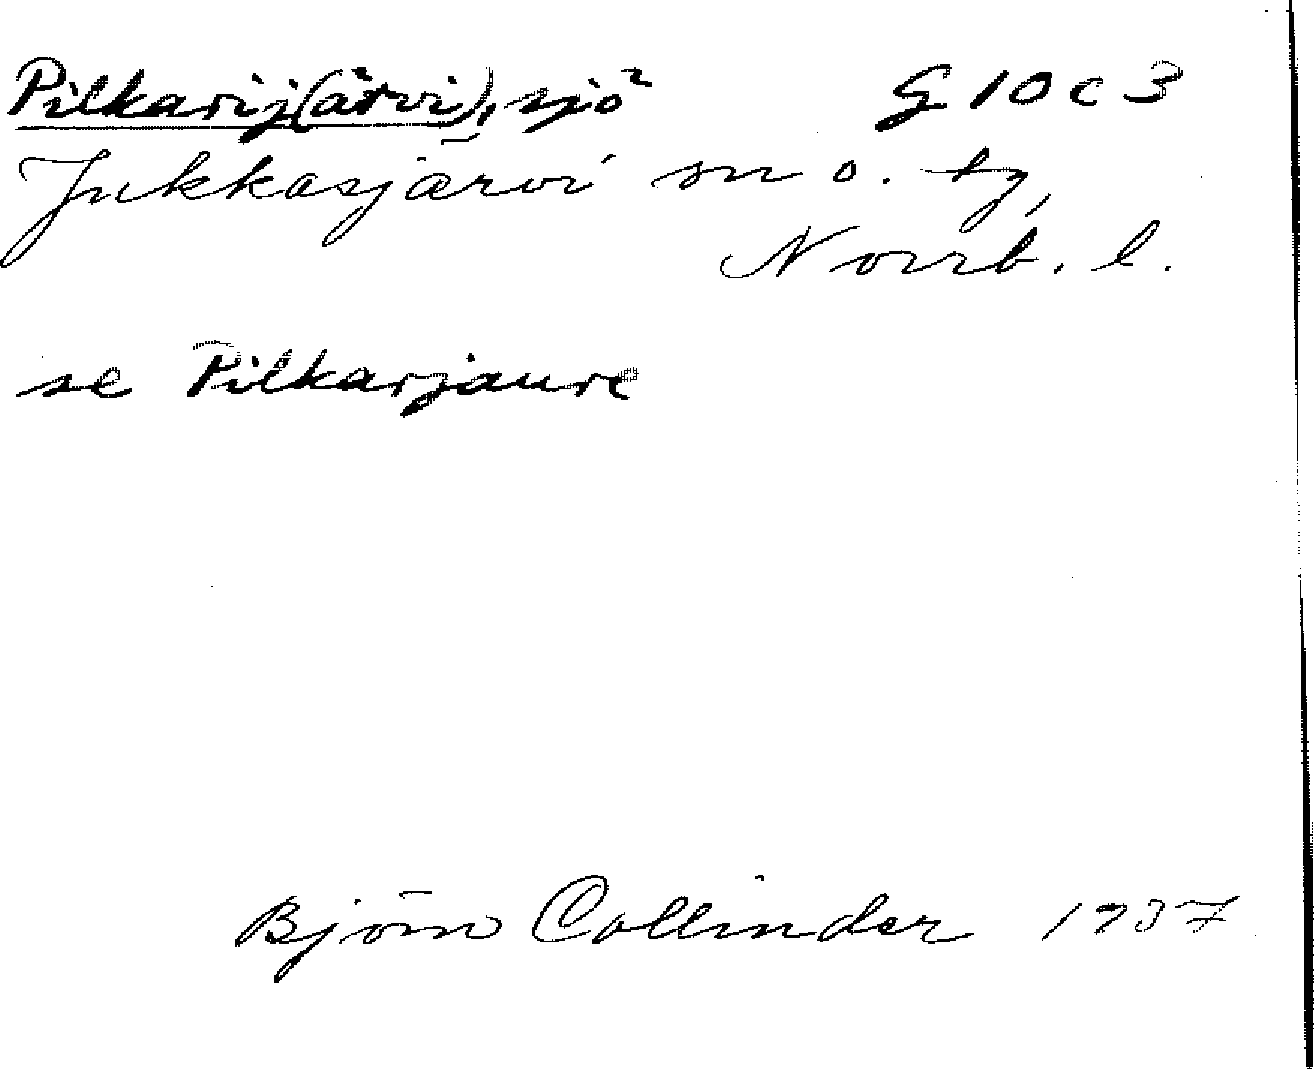 Pilkarij(ärvi), sjö G 10 c 3
Jukkasjärvi sn o. tg,
Norrb. l.
se Pilkarjaure
Björn Collinder 1937